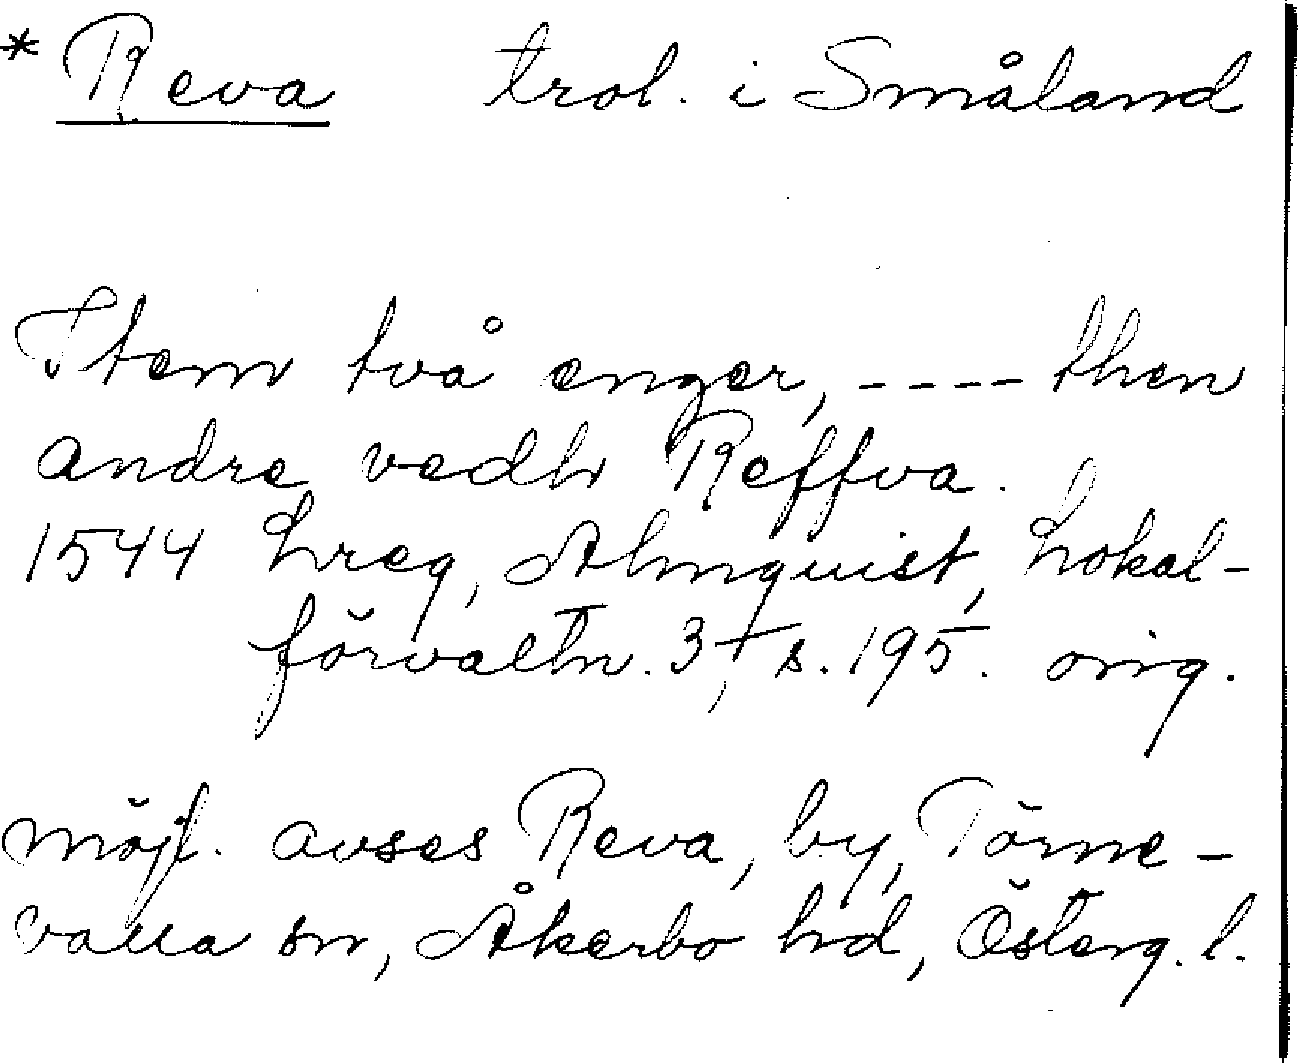 * Reva trol. i Småland
Item två enger, ---- then
andre vedh Reffva.
1544 hreg, Almquist, Lokal-
förvaltn. 3, s. 195. orig.
möjl. avses Reva, by, Törne-
valla sn, Åkerbo hd, Österg. l.